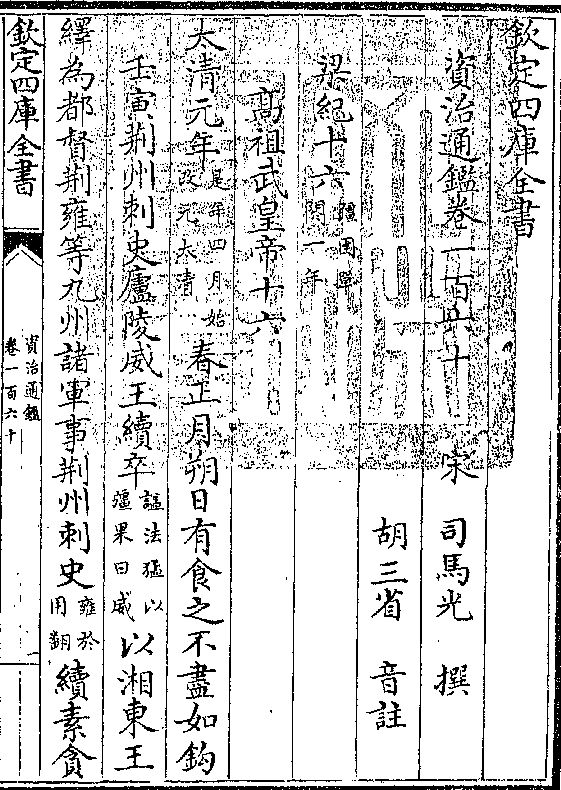 欽定四庫全書
資治通鑑卷一百六十 宋 司馬光 撰
胡三省 音註
梁紀十六 彊圉單閼一年
高祖武皇帝十六
太清元年 是年四月始改元太清 春正月朔日有食之不盡如鈎
壬寅荆州刺史廬陵威王續卒 諡法猛以彊果曰威 以湘東王
繹為都督荆雍等九州諸軍事荆州刺史 雍於用翻 續素貪
欽定四庫全書
資治通鑑
卷一百六十